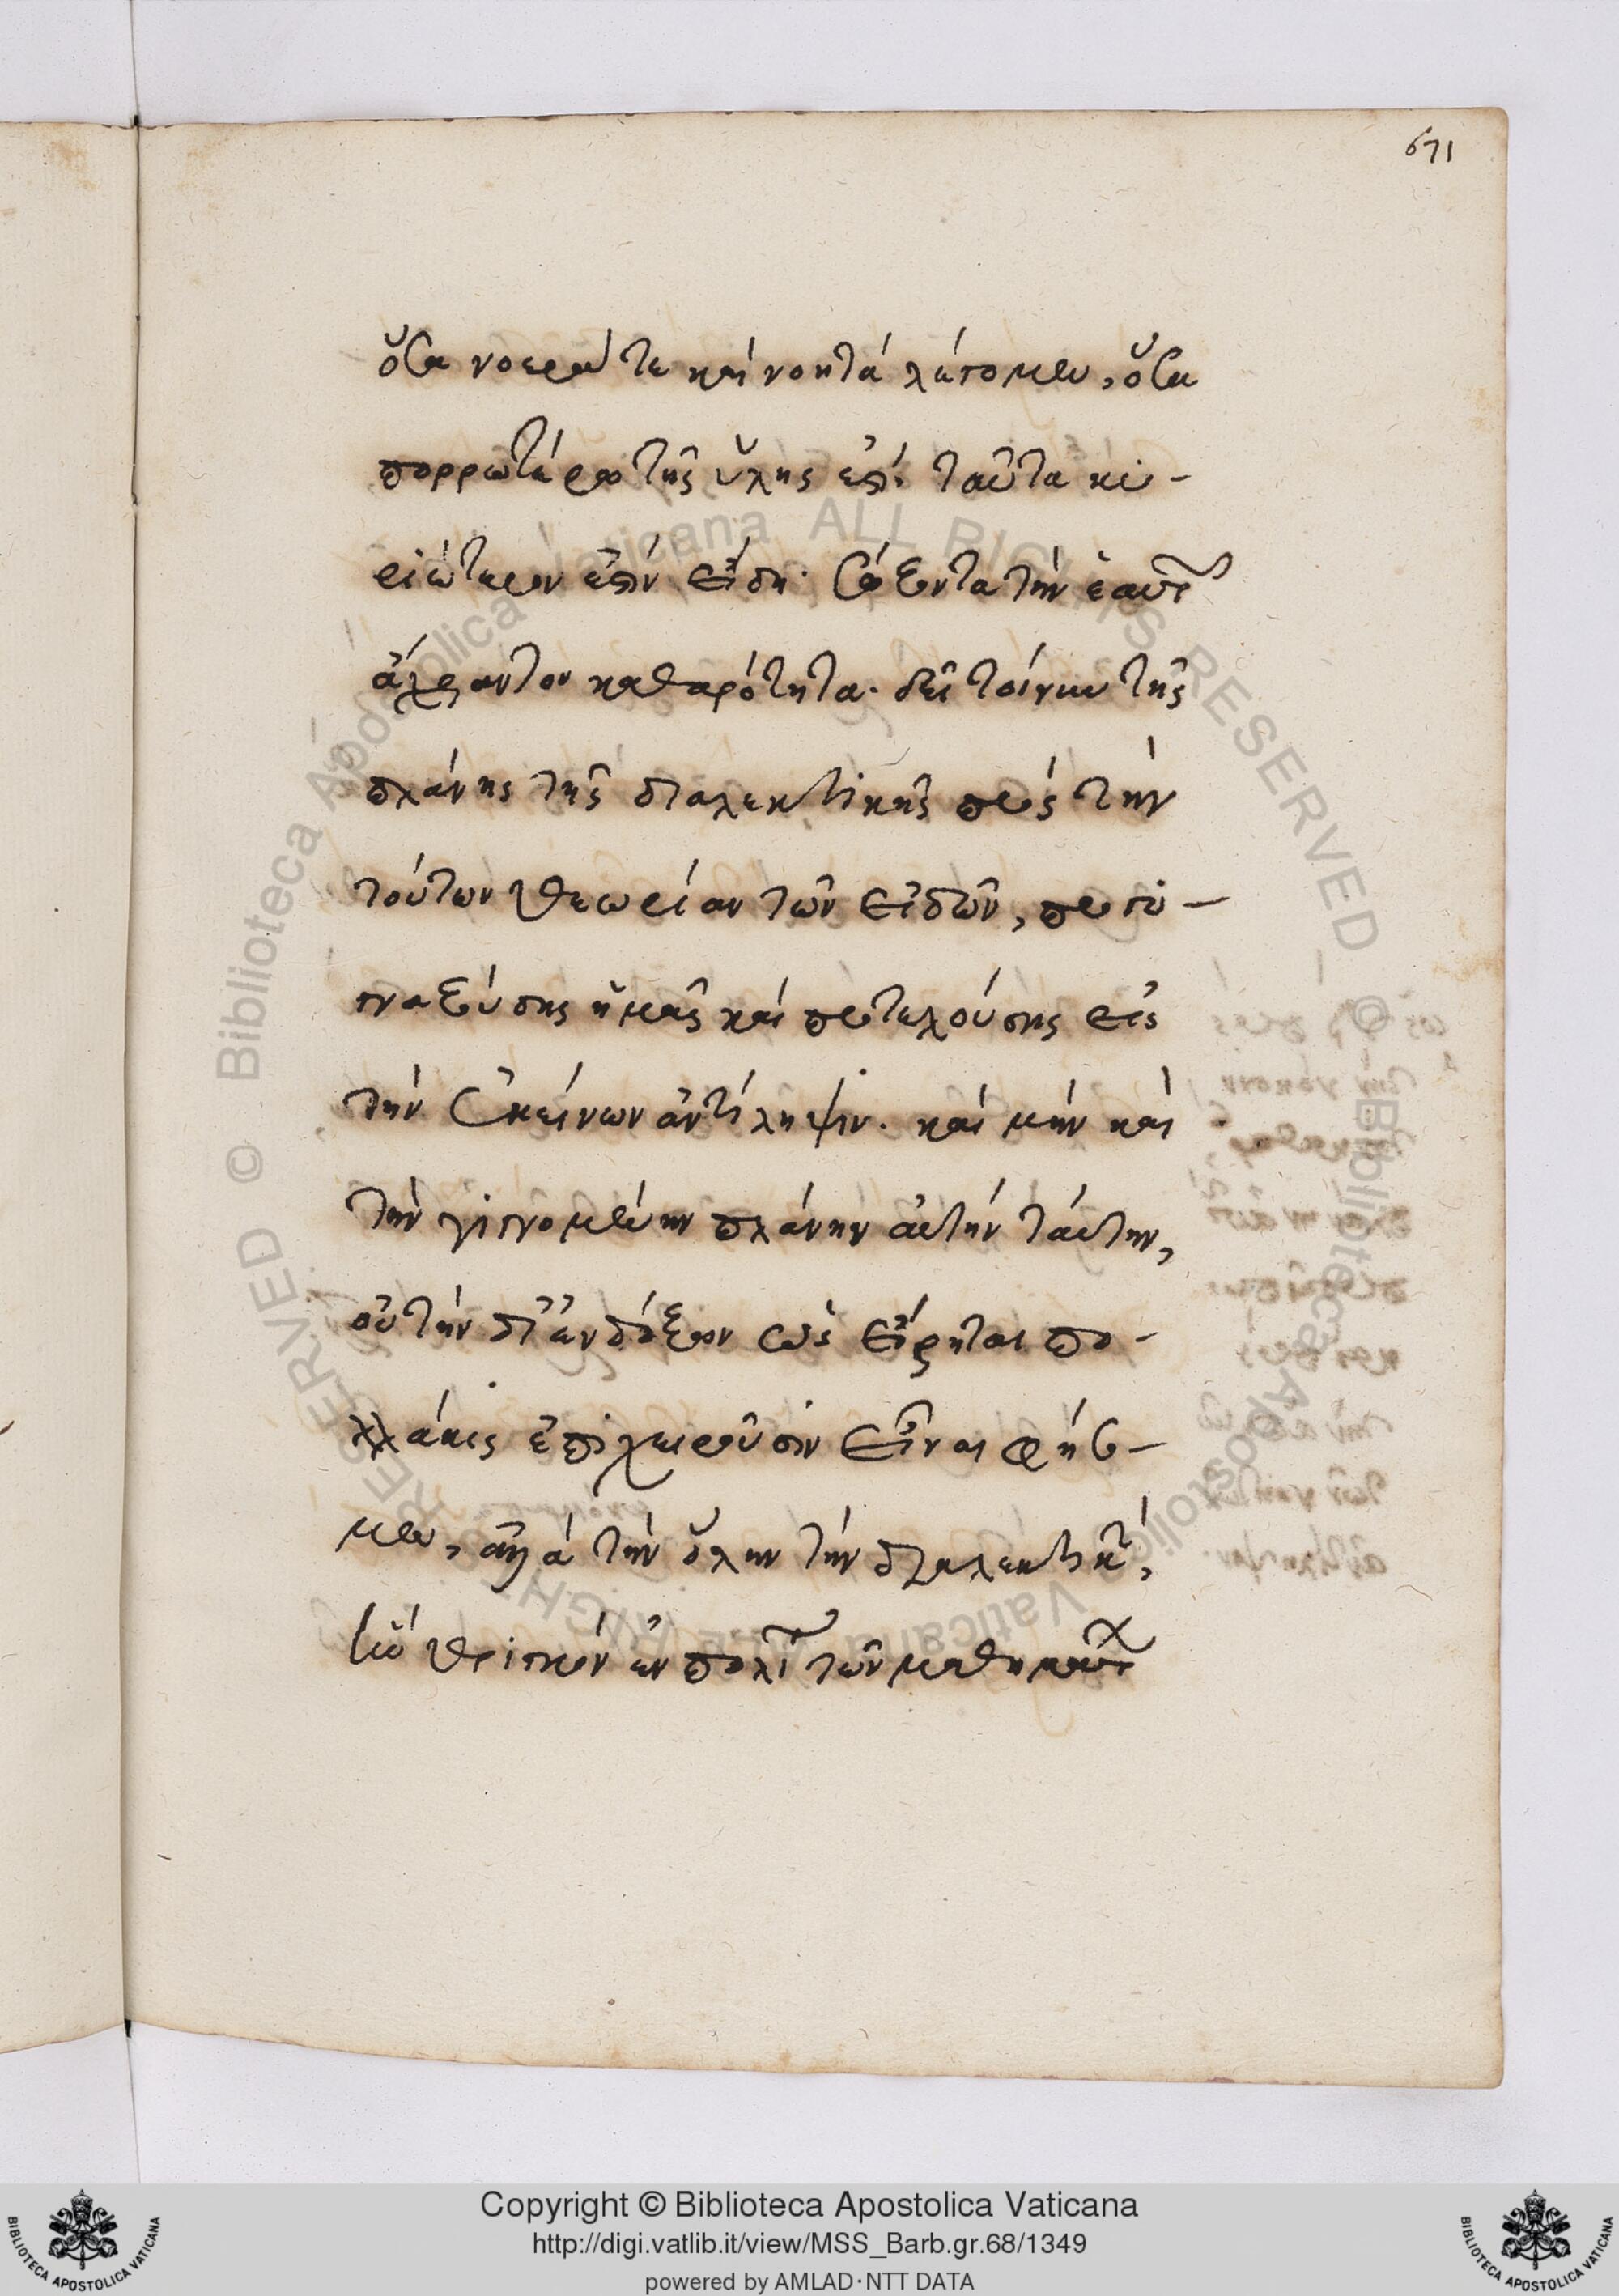 671
ὅσα νοερά τε καὶ νοητὰ λέγομεν, ὅσα
πορρωτέρω τῆς ὕλης ἐστί. ταῦτα κυ-
ριώτερον ἐστὶν εἴδη. σώζοντα τὴν ἑαυτῶν
ἄχραντον καθαρότητα. δεῖ τοίνυν τῆς
πλάνης τῆς διαλεκτικῆς πρὸς τὴν
τούτων θεωρίαν τῶν εἰδῶν, προγυ-
μναζούσης ἡμᾶς καὶ προτελούσης εἰς
τὴν ἐκείνων ἀντίληψιν. καὶ μὴν καὶ
τὴν γιγνομένην πλάνην αὐτὴν ταύτην,
οὐ τὴν δι' ἐνδόξων ὡς εἴρηται πο-
λλάκις ἐπιχειροῦσιν εἶναι φήσο-
μεν, ἀλλὰ τὴν ὅλην τὴν διαλεκτικήν,
τὸν θριγκὸν ἐν πολιτείᾳ τῶν μαθημάτων
Copyright © Biblioteca Apostolica Vaticana
http://digi.vatlib.it/view/MSS_Barb.gr.68/1349
powered by AMLAD·NTT DATA
BIBLIOTECA APOSTOLICA VATICANA
BIBLIOTECA APOSTOLICA VATICANA